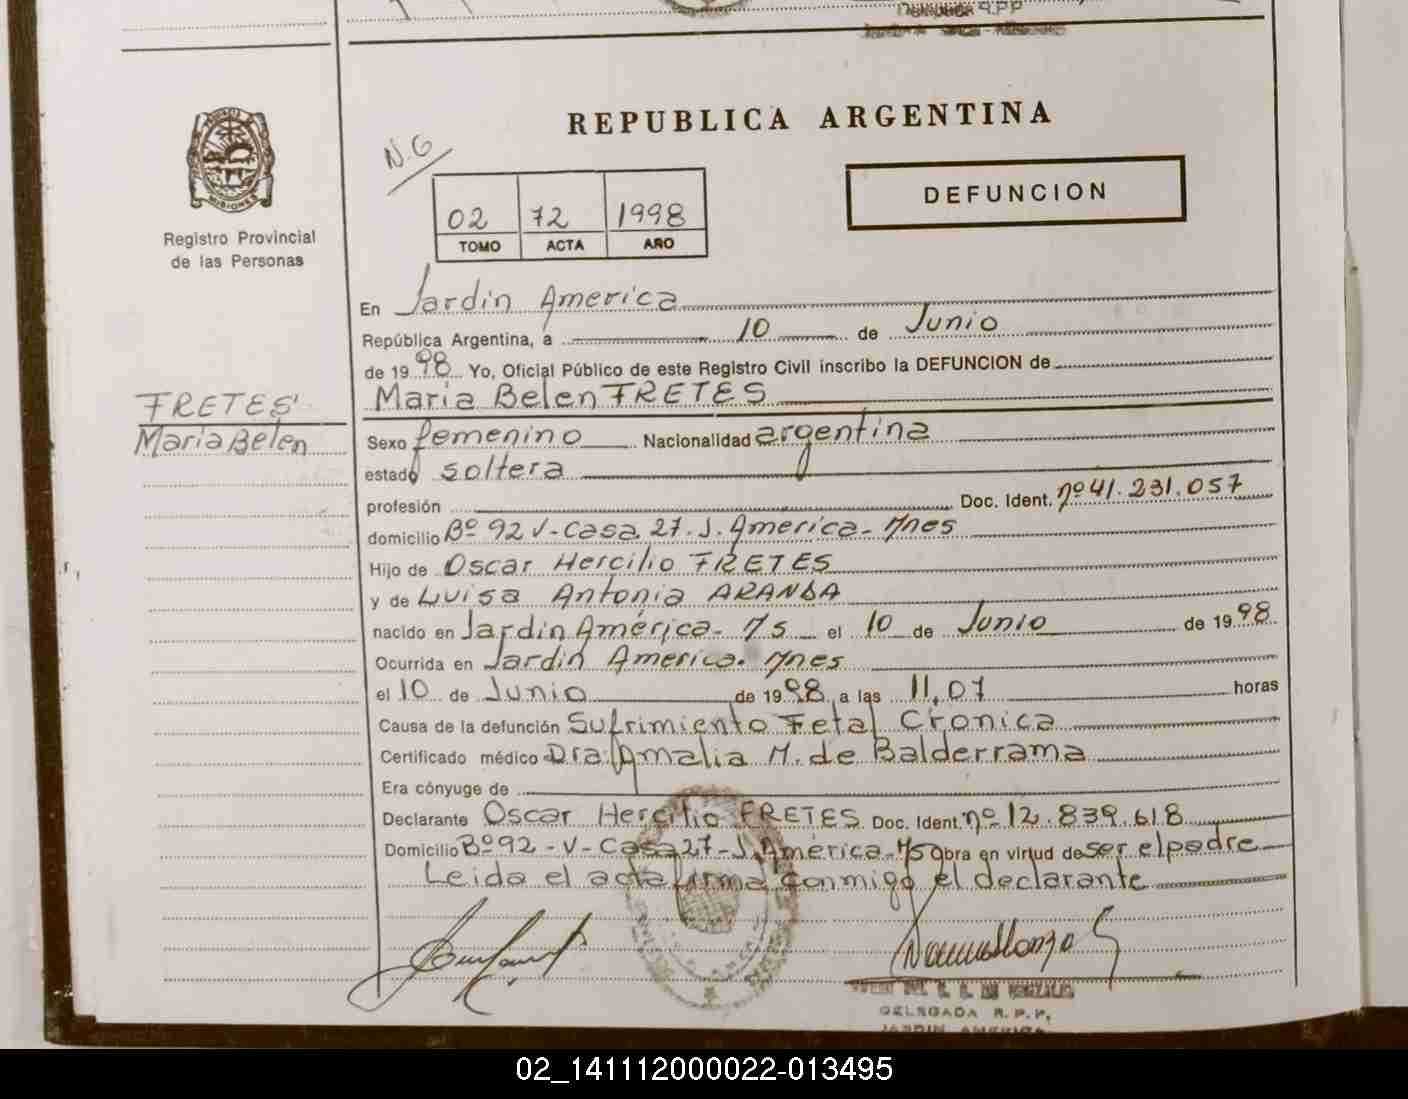 REPUBLICA ARGENTINA
N.G
DEFUNCION
02 72 1998
TOMO ACTA AÑO
MISIONES
Registro Provincial
de las Personas
En Jardin America
República Argentina, a 10 de Junio
de 1998 Yo, Oficial Público de este Registro Civil inscribo la DEFUNCION de
FRETES
Maria Belen
Maria Belen FRETES
Sexo femenino Nacionalidad argentina
estado soltera
profesión Doc. Ident. nº 41.231.057
domicilio Bº 92 V-Casa 27. J. America- Mnes
Hijo de Oscar Hercilio FRETES
y de Luisa Antonia ARANDA
nacido en Jardin América- Ms el 10 de Junio de 1998
Ocurrida en Jardin America. Mnes
el 10 de Junio de 1998 a las 11,07 horas
Causa de la defunción Sufrimiento Fetal Cronica
Certificado médico Dra. Amalia M. de Balderrama
Era cónyuge de
Declarante Oscar Hercilio FRETES Doc. Ident. nº 12.839.618
Domicilio Bº 92 - V- Casa 27- J. América- Ms Obra en virtud de ser el padre
Leida el acta firma conmigo el declarante
DELEGADA R.P.P.
JARDIN AMERICA
02_141112000022-013495